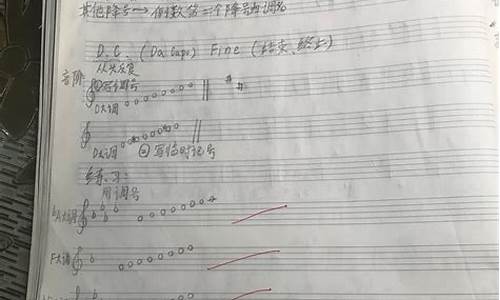 其他降号→倒数第二个降号为调名
D.C. (Da Capo) Fine (结束、终止)
从头反复
音阶
①写调号
D大调
D大调 ②写临时记号
练习:
用调号
bA大调
F大调